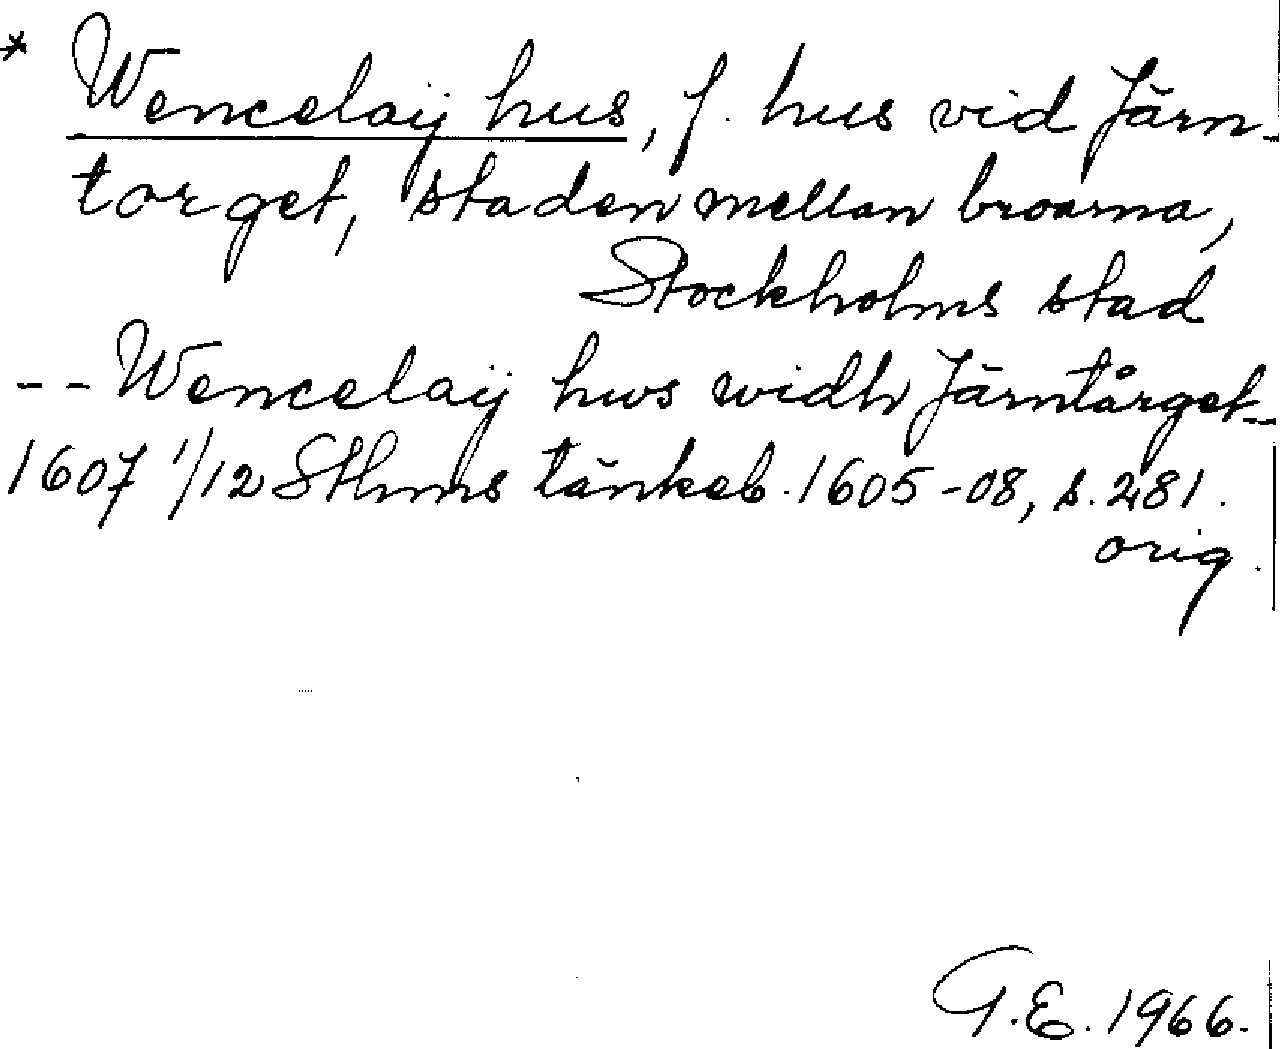 * Wencelaij hus, f. hus vid Järn-
torget, staden mellan broarna,
Stockholms stad
-- Wencelaij hws widh Järntårget --
1607 1/12 Sthms tänkeb. 1605-08, s. 281.
orig.
G.E. 1966.